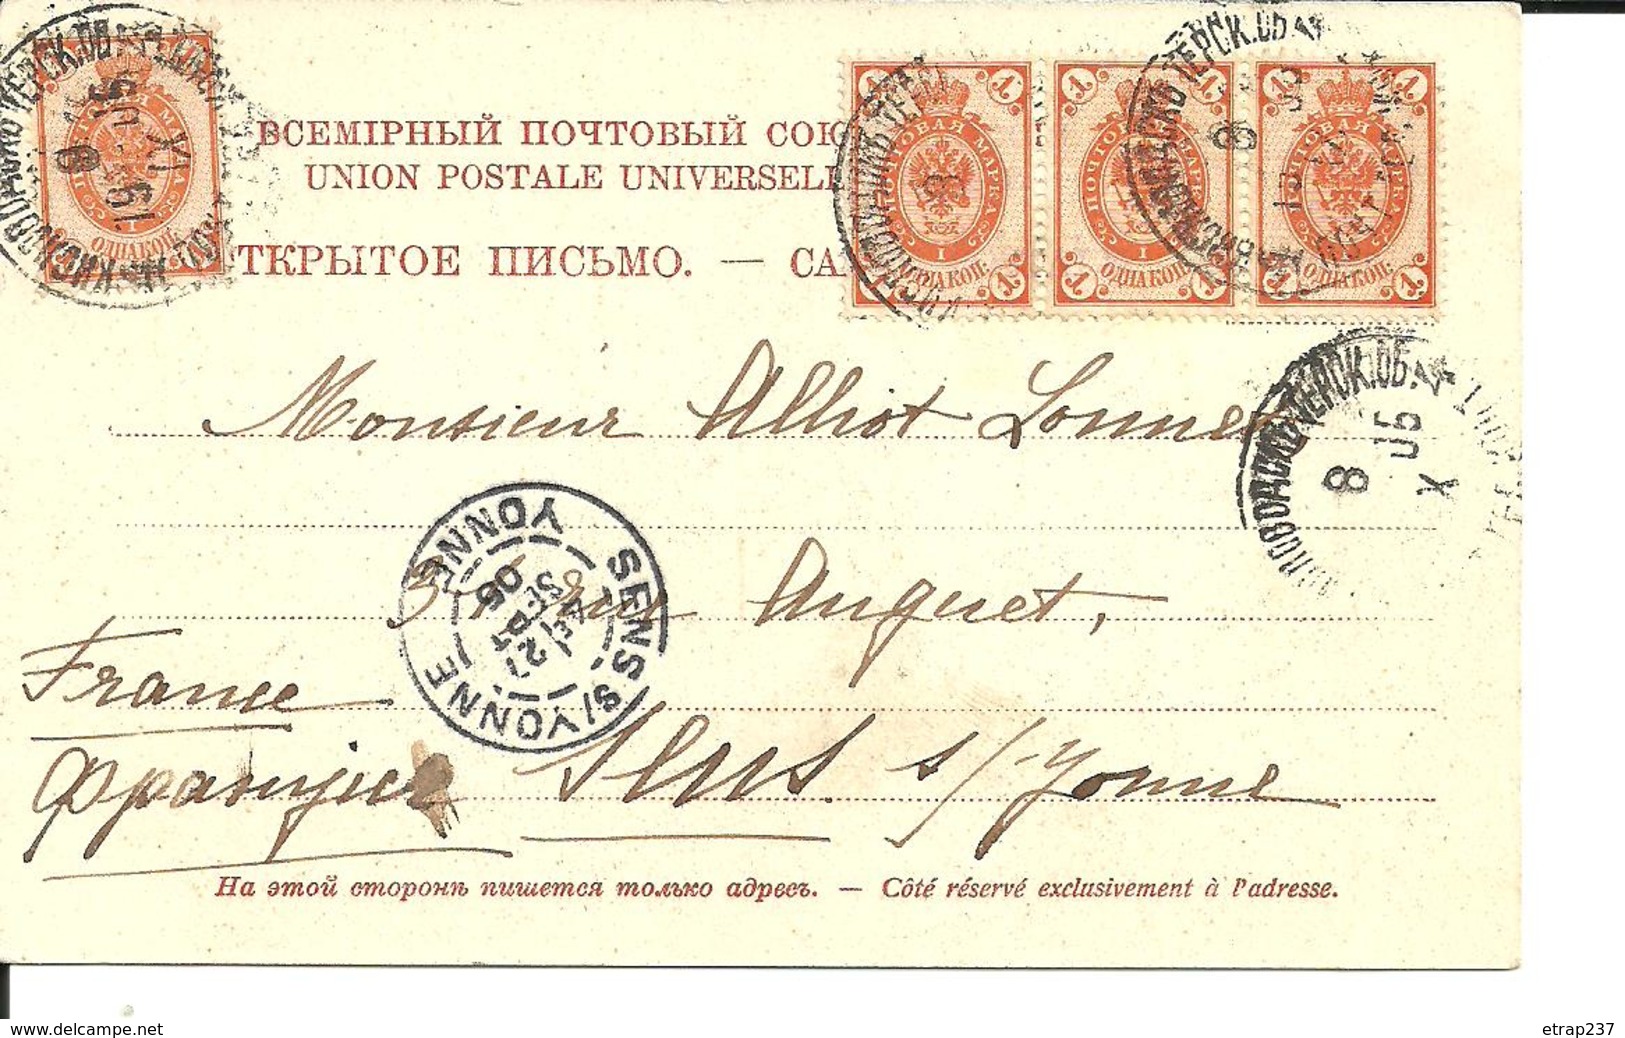 ВСЕМІРНЫЙ ПОЧТОВЫЙ СОЮ
UNION POSTALE UNIVERSELL
ТКРЫТОЕ ПИСЬМО. — CA
ПОЧТОВАЯ МАРКА
1 1
ОДНА КОП:
КИСЛОВОДСКЪ ТЕРСК.ОБ.
8 X 05
Monsieur Albiot Lonnet
rue Auguet,
SENS S/YONNE
YONNE
27
SEPT
05
France
Франція
Sens s/Yonne
На этой сторонѣ пишется только адресъ. — Côté réservé exclusivement à l'adresse.
delcampe.net
etrap237